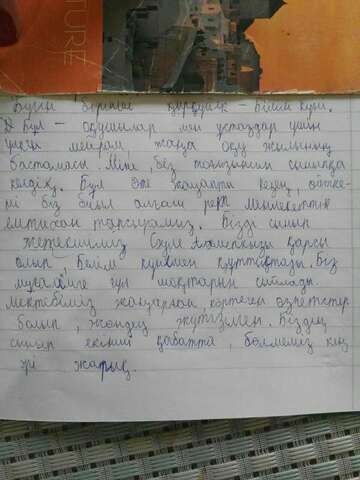 TURE
Бүгін бірінші қыркүйек - Білім күні.
Бұл - оқушылар мен ұстаздар үшін
үлкен мейрам, жаңа оқу жылының
бастамасы. Міне, біз тоғызыншы сыныпқа
келдік. Бұл өте жауапты кезең, өйтке-
ні біз биыл алғаш рет мемлекеттік
емтихан тапсырамыз. Бізді сынып
жетекшіміз Сәуле қарсы
алып Білім күнімен құттықтады. Біз
мұғалімге гүл шоқтарын сыйладық.
Мектебіміз жаңарған, көптеген өзгерістер
болып, жөндеу жүргізілген. Біздің
сынып екінші қабатта, бөлмеміз кең
әрі жарық.